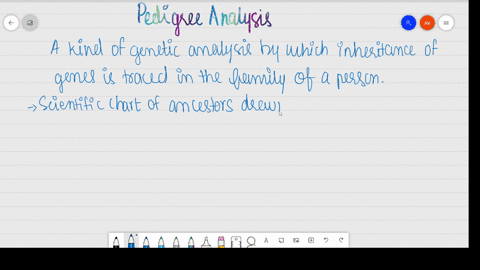 Pedigree Analysis
A kind of genetic analysis by which inheritance of
genes is traced in the family of a person.
→ Scientific chart of ancestors drew